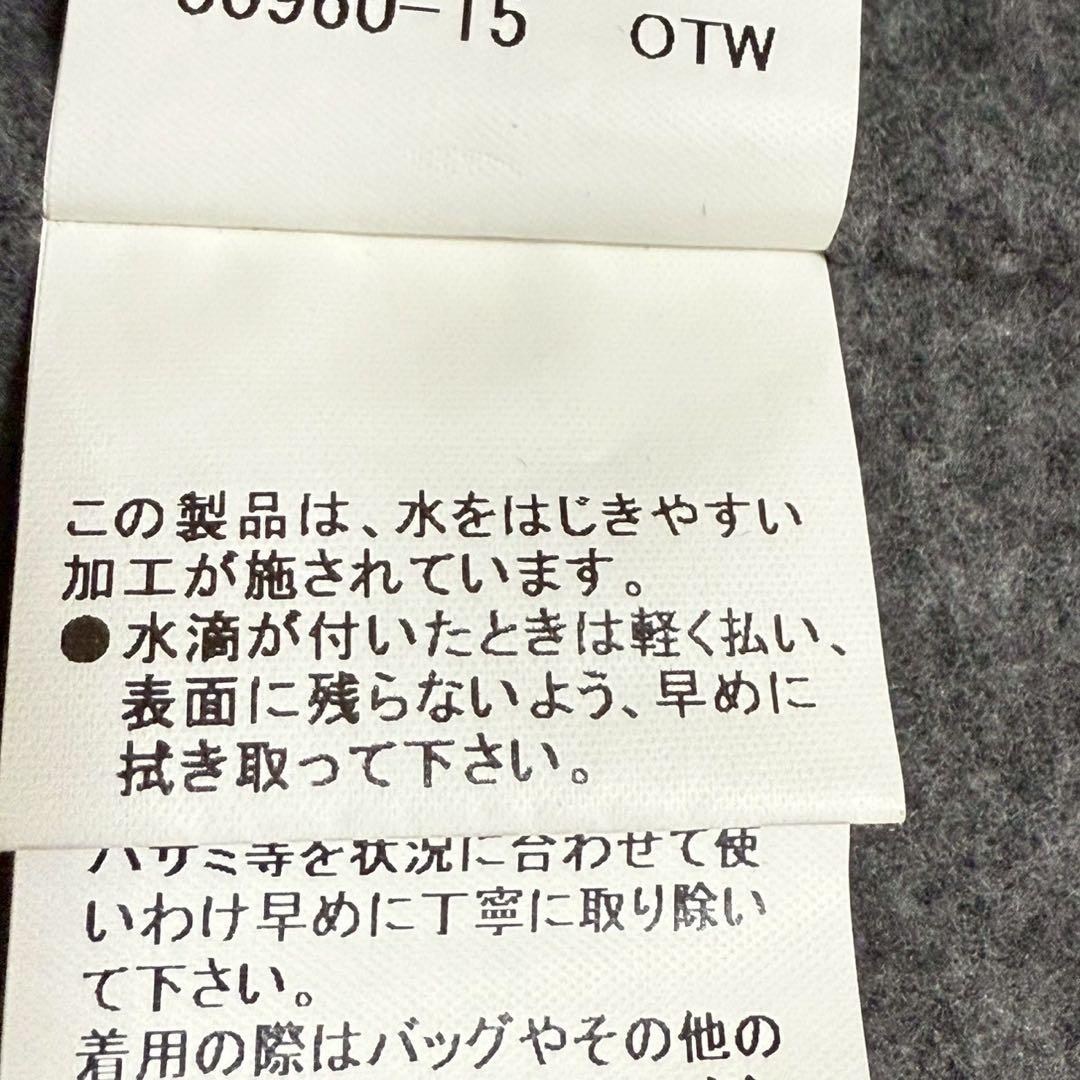 OTW
この製品は、水をはじきやすい
加工が施されています。
●水滴が付いたときは軽く払い、
表面に残らないよう、早めに
拭き取って下さい。
ハサミ等を状況に合わせて使
いわけ早めに丁寧に取り除い
て下さい。
着用の際はバッグやその他の